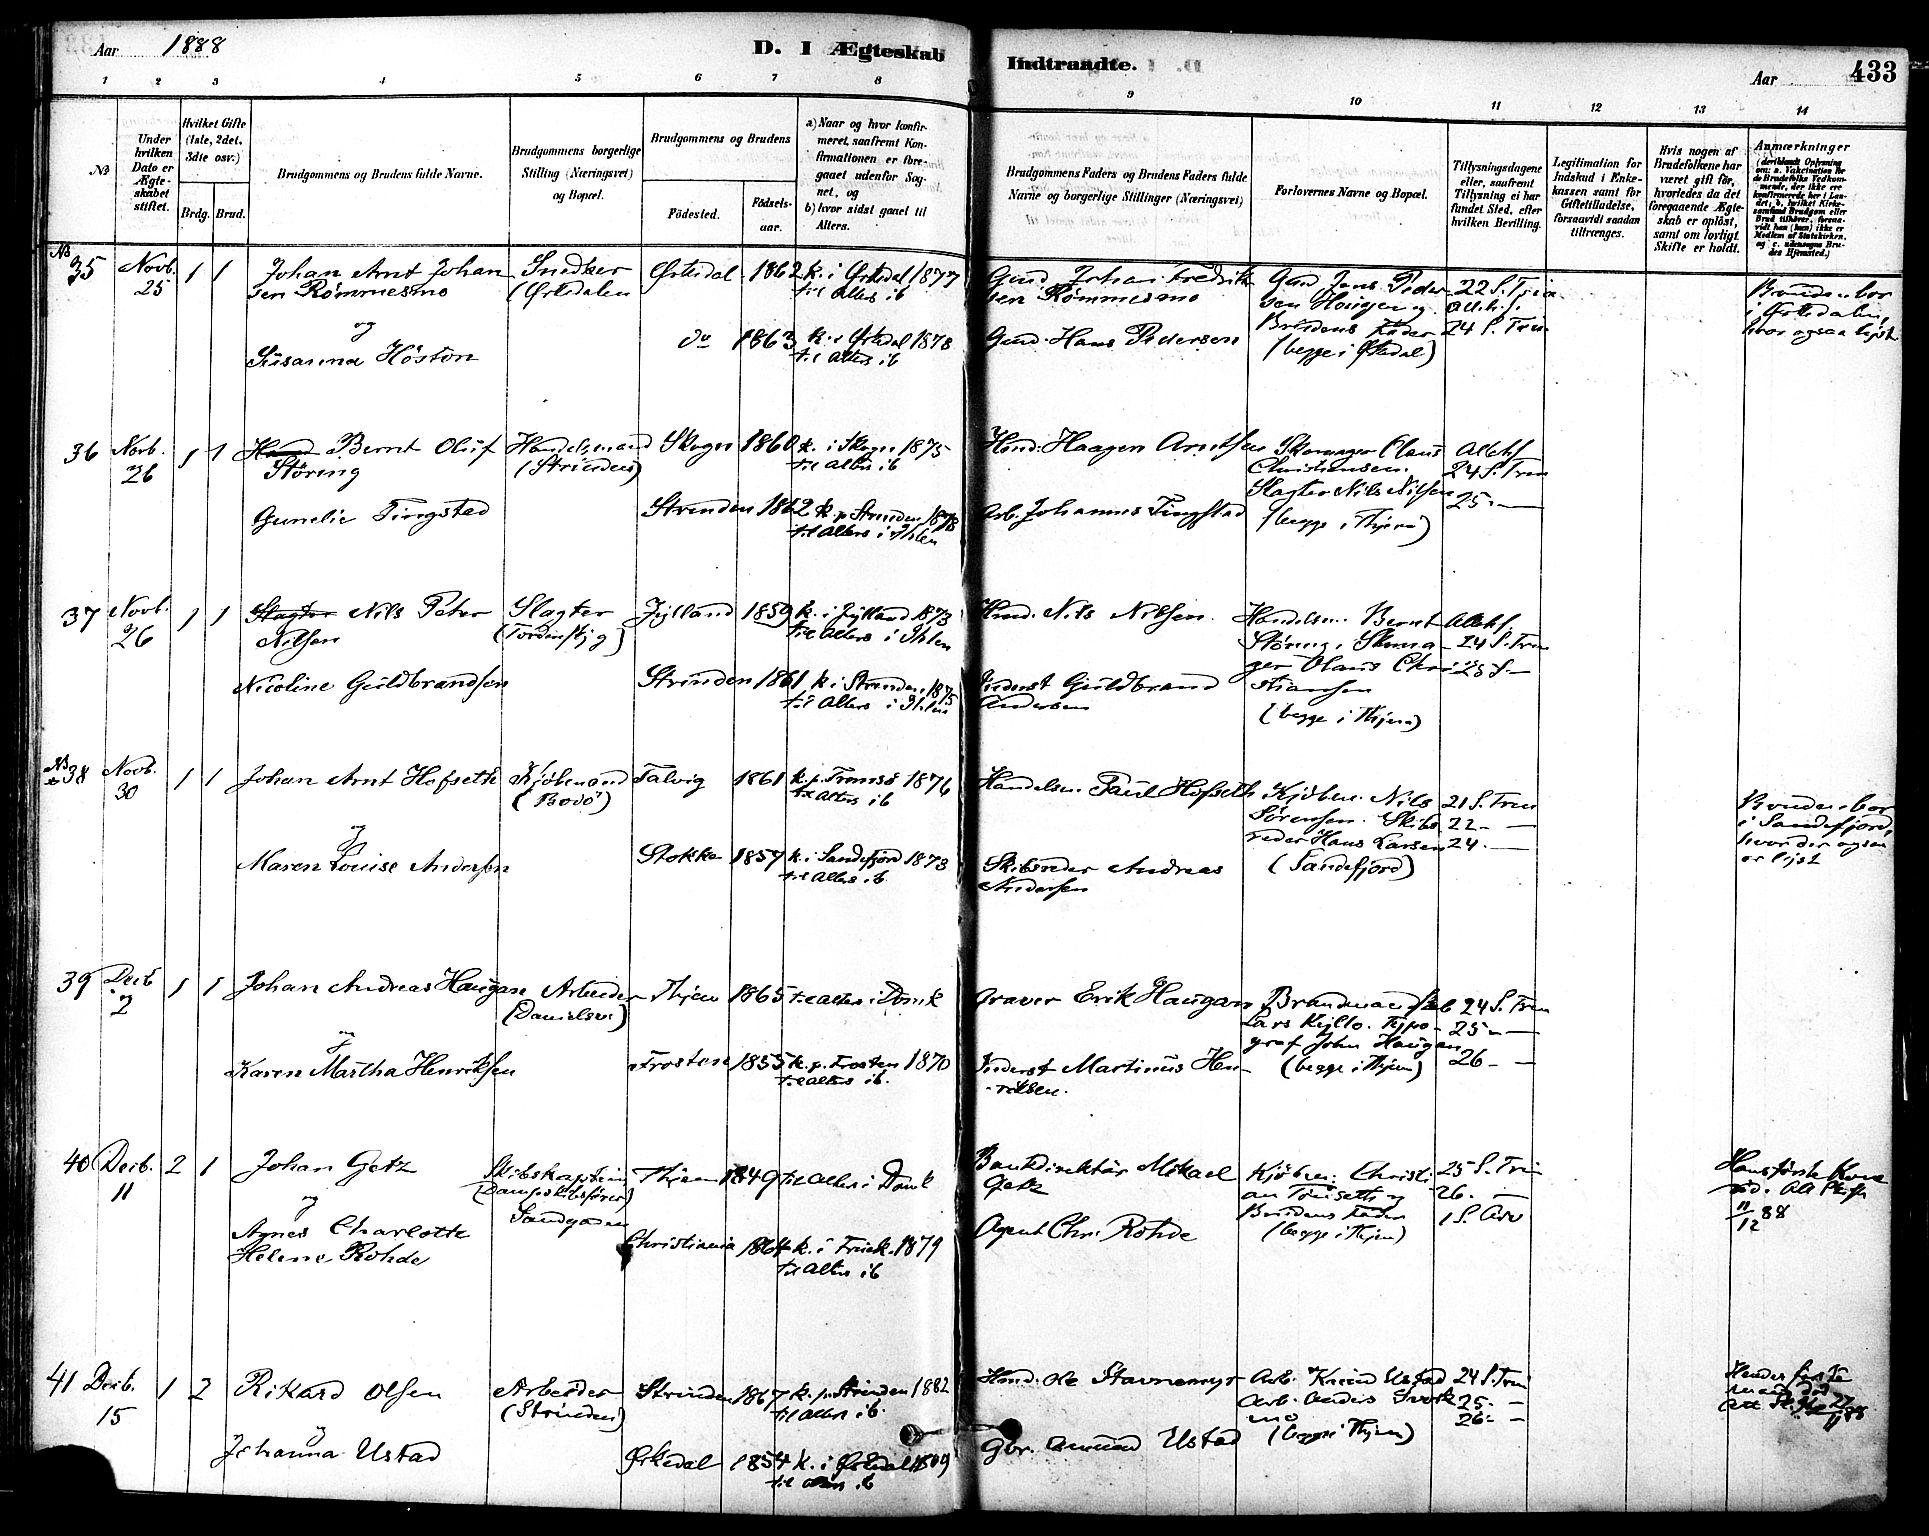 Aar 1888
D. I Ægteskab
Indtraadte.
Aar
433
1 2 3 4 5 6 7 8 9 10 11 12 13 14
No
Under hvilken Dato er Ægteskabet stiftet.
Hvilket Gifte (1ste, 2det, 3die osv.)
Brdg. Brud.
Brudgommens og Brudens fulde Navne.
Brudgommens borgerlige Stilling (Næringsvei) og Bopæl.
Brudgommens og Brudens
Fødested.
Fødsels-aar.
a) Naar og hvor konfirmeret, saafremt Konfirmationen er foregaaet udenfor Sognet, og
b) hvor sidst gaaet til Alters.
Brudgommens Faders og Brudens Faders fulde Navne og borgerlige Stillinger (Næringsvei)
Forlovernes Navne og Bopæl.
Tillysningsdagene eller, saafremt Tillysning ei har fundet Sted, efter hvilken Bevilling.
Legitimation for Indskud i Enkekassen samt for Giftetilladelse, forsaavidt saadan tiltrænges.
Hvis nogen af Brudefolkene har været gift før, hvorledes da det foregaaende Ægteskab er opløst, samt om lovligt Skifte er holdt.
Anmærkninger
35 Novb. 25 1 1
Johan Arnt Johansen Rømmesmo
Snedker (Ørkedalen
Ørkedal 1862
k. i Ørkedal 1877
til Alters ib
Gmd. Johan Fredriksen Rømmesmo
Gmd Jens Pedersen Haugen og
Brudens Fader
(begge i Ørkedal)
22 S. Trin
24 S. Trin
Bruden bor i Ørkedalen, hvor ogsaa lyst
og
Susanna Høston
do 1863
k. i Ørkedal 1878
til Alters ib
Gmd. Hans Pedersen
36 Novb. 26 1 1
Bernt Oluf Støring
Handelsmand (Strinden)
Skogn 1860
k. i Skogn 1875
til Alters ib
Hmd. Haagen Arntsen
Skomager Olaus Christiansen.
Slagter Nils Nilsen
(begge i Thjem)
24 S. Trin
25 -
Gunelie Tingstad
Strinden 1862
k. p. Strinden 1878
til Alters i Ihlen
Arb. Johannes Tingstad
37 Novb. 26 1 1
Slagter Nils Peter Nilsen
Slagter
Jylland 1859
k. i Jylland 1873
til Alters i Ihlen
Hmd. Nils Nilsen.
Handelsm. Bernt Støring, Skomager Olaus Christiansen
(begge i Thjem)
24 S. Trin
25 S. -
Nicoline Guldbrandsen
Strinden 1861
k. i Strinden 1875
til Alters i Ihlen
Inderst Guldbrand Andersen
38 Novb. 30 1 1
Johan Arnt Hofseth
Kjøbmand (Bodø)
Talvig 1861
k. p. Tromsø 1876
til Alters ib
Handelsm. Paul Hofseth
Kjøbm. Nils Sørensen. Skibsreder Hans Larsen
(Sandefjord)
21 S. Trin
22 -
24 -
Bruden bor i Sandefjord, hvor der ogsaa er lyst
og
Maren Louise Andersen
Stokke 1857
k. i Sandefjord 1873
til Alters ib.
Skibsreder Andreas Andersen
39 Decb 2 1 1
Johan Andreas Haugan
Arbeider (Danielsv.)
Thjem 1865
til Alters i Domk
Graver Erik Haugan
Lars Kjello. Typograf John Haugan
(begge i Thjem)
24 S. Trin
25 -
26 -
og
Karen Martha Henriksen
Frosten 1855
k. p. Frosten 1870
til Alters ib.
Inderst Martinus Henriksen.
40 Decb. 11 2 1
Johan Getz
Skibskaptein (Dampskibsfører) Sandgaden
Thjem 1849
til Alters i Domk
Bankdirektør Mikael Getz
Kjøbm. Christian Thuseth og
Brudens Fader
(begge i Thjem)
25 S. Trin
26. -
1 S. Adv
Hans første Kone død. Att Skifte 11/12 88
og
Agnes Charlotte Helene Rohde
Christiania 1864
k. i Fruek. 1879
til Alters ib
Agent Chr. Rohde
41 Decb. 15 1 2
Rikard Olsen
Arbeider (Strinden)
Strinden 1867
k. p. Strinden 1882
til Alters ib.
Hmd. Ole Stavnemyr
Arb. Anders
(begge i Thjem)
24 S. Trin
25 -
26 -
Hendes første Mand død
og
Johanna Ustad
Ørkedal 1854
k. i Ørkedal 1869
til Alters ib
Gbr. Amund Ustad